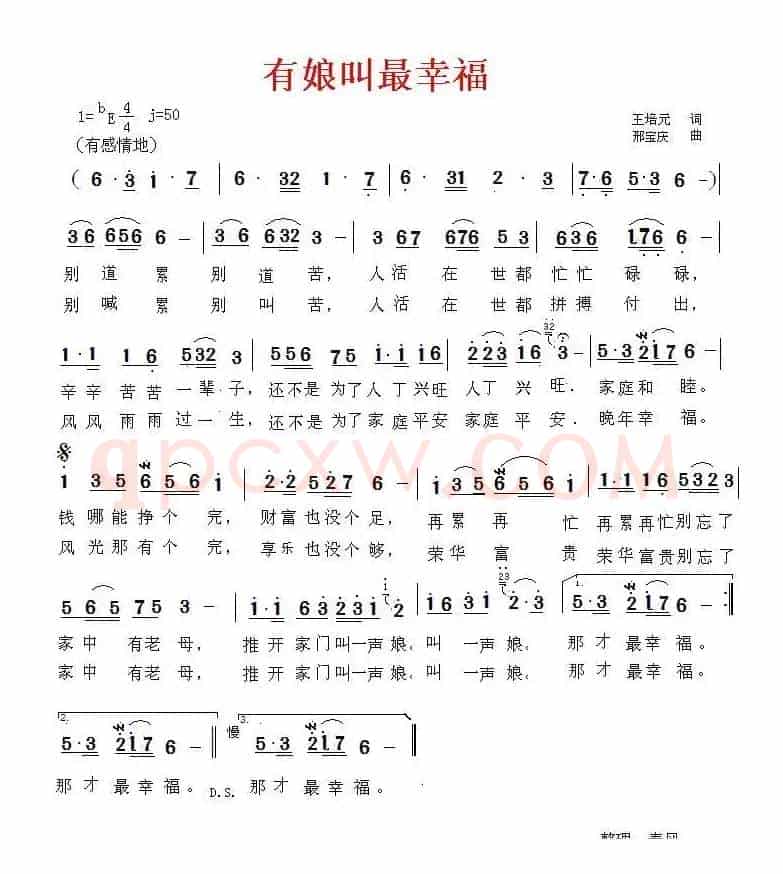 有娘叫最幸福
1=ᵇE 4/4 j=50
王培元 词
(有感情地)
邢宝庆 曲
(6·3 i·7 | 6·32 1·7 | 6·31 2·3 | 7·6 5·3 6 -)
36 656 6 - | 36 632 3 - | 3 67 676 53 | 636 1.76 6 - |
别 道 累 别 道 苦, 人活 在 世都 忙忙 碌 碌,
别 喊 累 别 叫 苦, 人活 在 世都 拼搏 付 出,
1·1 1 6 532 3 | 556 75 i·i i 6 | 223 i6 32 3 - | 5·3 2i7 6 - |
辛辛 苦苦 一辈子, 还不是 为了人丁兴旺 人丁 兴 旺. 家庭和 睦。
风风 雨雨 过一生, 还不是 为了家庭平安 家庭 平 安. 晚年幸 福。
i 35 6 56 i | 2·2 527 6 - | 35 6 56 i | 35 2·i6 5323 |
qpcxw.COM
钱 哪能 挣个 完, 财富也没个 足, 再累 再 忙 再累再忙别忘了
风光 那有 个 完, 享乐也没个 够, 荣华 富 贵 荣华富贵别忘了
5 65 75 3 - | i·i 63 231 23 i2 | i6 3i 23 2 - | 1. 5·3 2i7 6 - :‖
家中 有老 母, 推开 家门叫一声娘。叫 一声 娘。 那才 最幸 福。
家中 有老 母, 推开 家门叫一声娘。叫 一声 娘。 那才 最幸 福。
2. 5·3 2i7 6 - ‖ 慢 3. 5·3 2i7 6 - ‖
那才 最幸 福。 D.S. 那才 最幸 福。